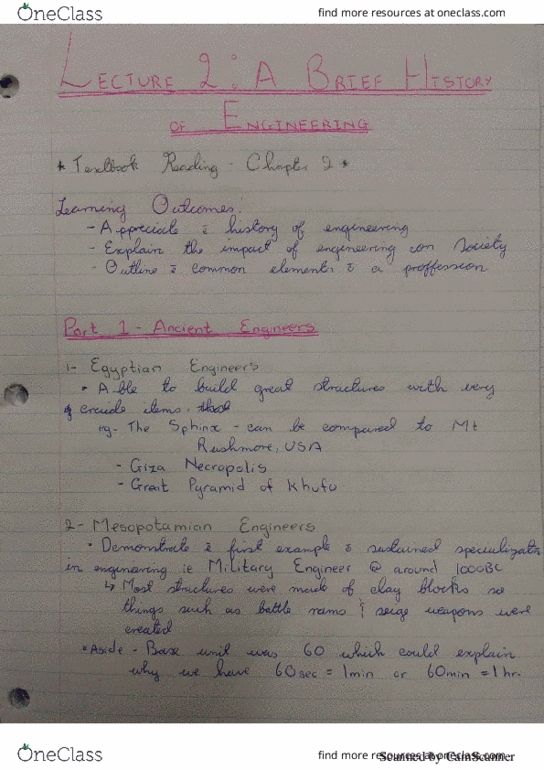 OneClass find more resources at oneclass.com
LECTURE 2: A BRIEF HISTORY
OF ENGINEERING
* Textbook Reading - Chapter 2 *
Learning Outcomes:
- Appreciate & history of engineering
- Explain the impact of engineering on Society
- Outline & common elements & a proffession
Part 1 - Ancient Engineers
1- Egyptian Engineers
• Able to build great structures with very
crude items.
eg- The Sphinx - can be compared to Mt
Rushmore, USA
- Giza Necropolis
- Great Pyramid of Khufu
2- Mesopotamian Engineers
• Demonstrate & first example & sustained
in engineering ie Military Engineer @ around 1000BC
↳ Most structures were made of clay blocks so
things such as battle rams & weapons were
created
• Aside - Base unit was 60 which could explain
why we have 60sec = 1min or 60min = 1hr.
OneClass find more resources at oneclass.com
Scanned by CamScanner